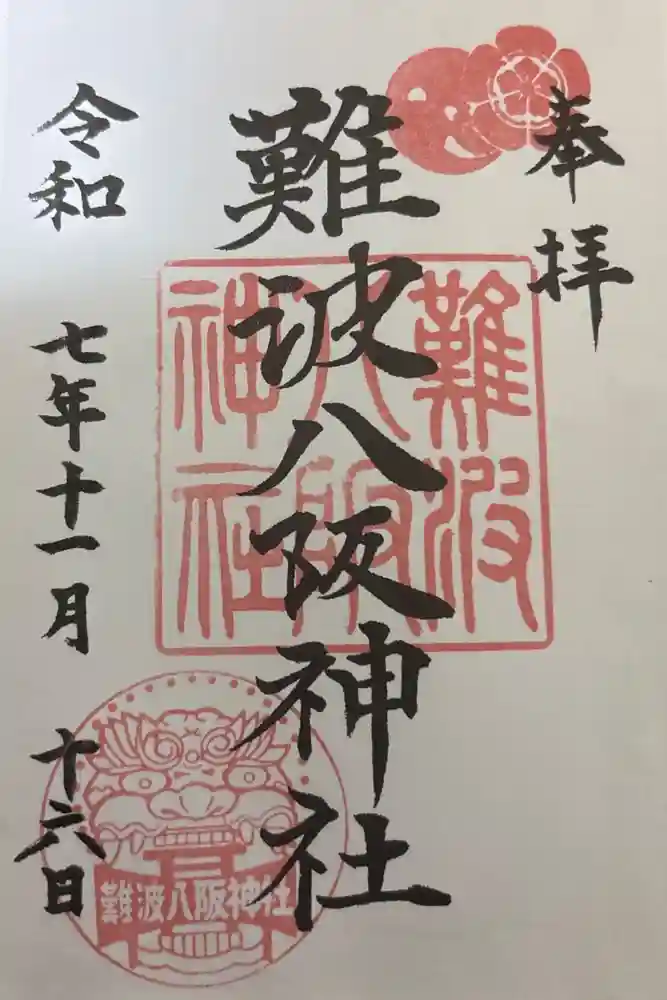 奉拝
難波八阪神社
難波八阪神社
令和 七年十一月 十六日
難波八阪神社